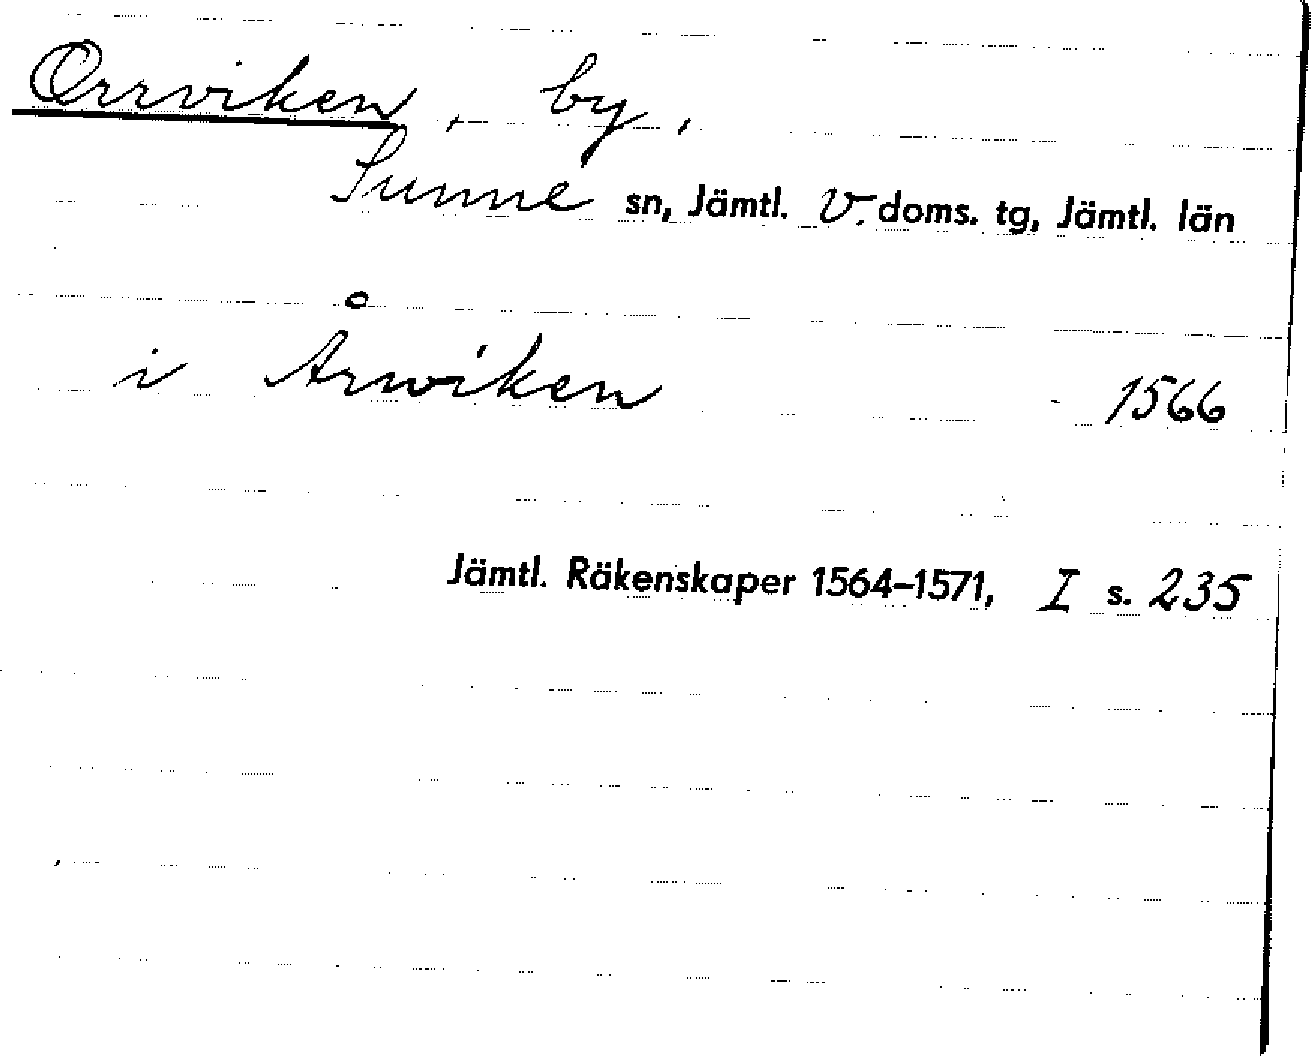 Orrviken, by,
Sunne sn, Jämtl. V. doms. tg, Jämtl. län
i Årwiken 1566
Jämtl. Räkenskaper 1564–1571, I s. 235